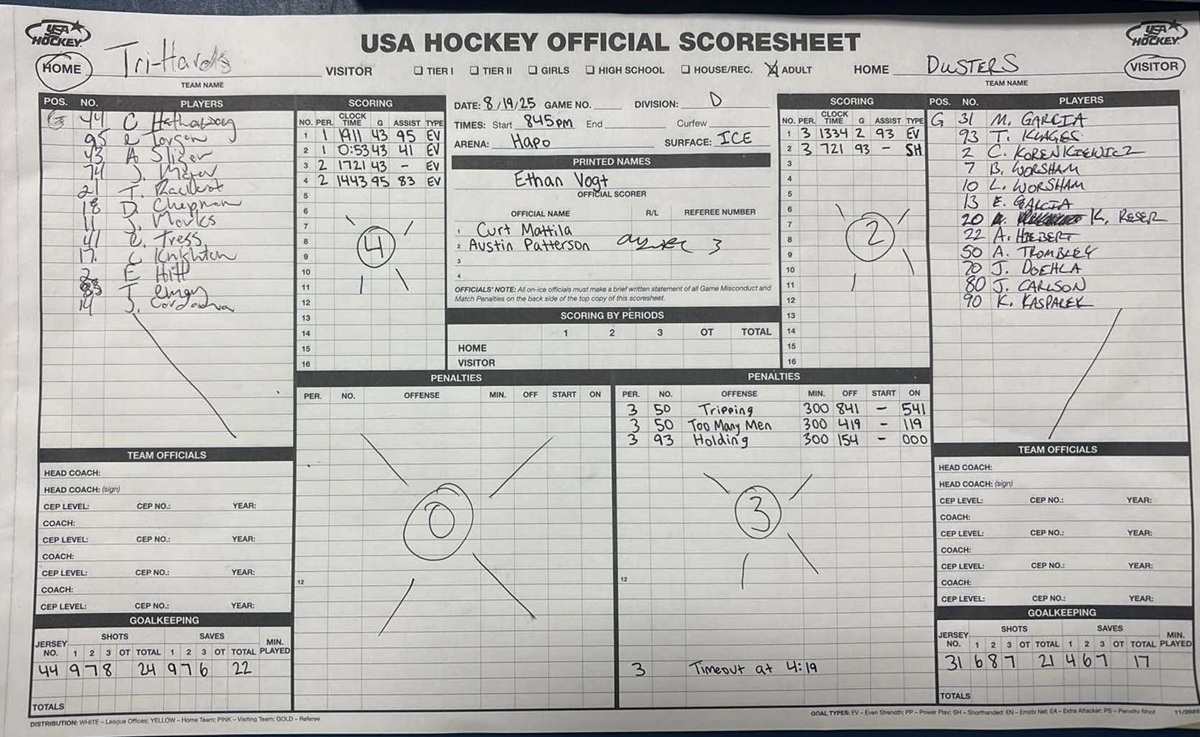 USA HOCKEY
USA HOCKEY OFFICIAL SCORESHEET
USA HOCKEY
HOME Tri-Hards VISITOR ☐ TIER I ☐ TIER II ☐ GIRLS ☐ HIGH SCHOOL ☐ HOUSE/REC. ☒ ADULT HOME DUSTERS VISITOR
TEAM NAME
TEAM NAME
POS. NO. PLAYERS
G 44 C Hathaway
95 Torson
43 A. Slizer
74 J.
21 T.
18 D. Chepman
11 J. Marks
41 Tress
17. C Knighton
2 E Hitt
83 T
14 J. Cordova
SCORING
NO. PER. CLOCK TIME G ASSIST TYPE
1 1 1911 43 95 EV
2 1 0:53 43 41 EV
3 2 1721 43 - EV
4 2 1443 95 83 EV
5
6
7
8
9
10
11
12
13
14
15
16
4
DATE: 8/19/25 GAME NO. DIVISION: D
TIMES: Start 845pm End Curfew
ARENA: Hapo SURFACE: ICE
PRINTED NAMES
Ethan Vogt
OFFICIAL SCORER
OFFICIAL NAME R/L REFEREE NUMBER
1 Curt Mattila
2 Austin Patterson 3
3
4
OFFICIALS' NOTE: All on-ice officials must make a brief written statement of all Game Misconduct and
Match Penalties on the back side of the top copy of this scoresheet.
SCORING BY PERIODS
1 2 3 OT TOTAL
HOME
VISITOR
SCORING
NO. PER. CLOCK TIME G ASSIST TYPE
1 3 1334 2 93 EV
2 3 721 93 - SH
3
4
5
6
7
8
9
10
11
12
13
14
15
16
2
POS. NO. PLAYERS
G 31 M. GARCIA
93 T. KLAGES
2 C. KORENKIEWICZ
7 B. WORSHAM
10 L. WORSHAM
13 E. GARCIA
20 K. RESER
22 A. HIEBERT
50 A. TROMBLEY
70 J. DOEHLA
80 J. CARLSON
90 K. KASPALEK
PENALTIES
PER. NO. OFFENSE MIN. OFF START ON
0
12
PENALTIES
PER. NO. OFFENSE MIN. OFF START ON
3 50 Tripping 300 841 - 541
3 50 Too Many Men 300 419 - 119
3 93 Holding 300 154 - 000
3
12
3 Timeout at 4:19
TEAM OFFICIALS
HEAD COACH:
HEAD COACH: (sign)
CEP LEVEL: CEP NO.: YEAR:
COACH:
CEP LEVEL: CEP NO.: YEAR:
COACH:
CEP LEVEL: CEP NO.: YEAR:
COACH:
CEP LEVEL: CEP NO.: YEAR:
GOALKEEPING
SHOTS SAVES
JERSEY NO. 1 2 3 OT TOTAL 1 2 3 OT TOTAL MIN. PLAYED
44 9 7 8 24 9 7 6 22
TOTALS
TEAM OFFICIALS
HEAD COACH:
HEAD COACH: (sign)
CEP LEVEL: CEP NO.: YEAR:
COACH:
CEP LEVEL: CEP NO.: YEAR:
COACH:
CEP LEVEL: CEP NO.: YEAR:
COACH:
CEP LEVEL: CEP NO.: YEAR:
GOALKEEPING
SHOTS SAVES
JERSEY NO. 1 2 3 OT TOTAL 1 2 3 OT TOTAL MIN. PLAYED
31 6 8 7 21 4 6 7 17
TOTALS
DISTRIBUTION: WHITE – League Offices; YELLOW – Home Team; PINK – Visiting Team; GOLD – Referee
GOAL TYPES: EV – Even Strength; PP – Power Play; SH – Shorthanded; EN – Empty Net; EA – Extra Attacker; PS – Penalty Shot